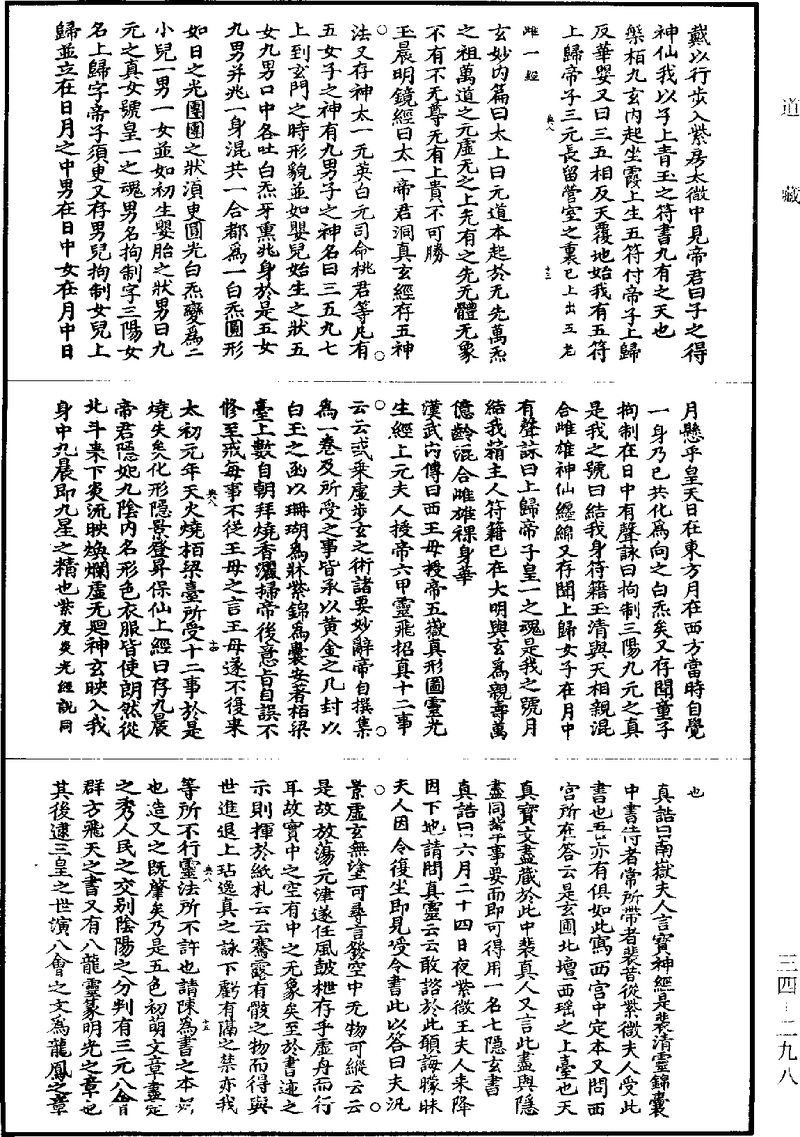 道藏
戴以行步入紫房太微中見帝君曰子之得
神仙我以子上青玉之符書九有之天也
槃栢九玄内起坐霞上生五符付帝子上歸
反華嬰又曰三五相反天覆地始我有五符
上歸帝子三元長留營室之裏已上出五老
雌一經
玄妙内篇曰太上曰元道本起於无先萬炁
之祖萬道之元虛无之上先有之先无體无象
不有不无尊无有上貴不可勝
玉晨明鏡經曰太一帝君洞真玄經存五神
法又存神太一无英白元司命桃君等凡有
五女子之神有九男子之神名曰三五九七
上到玄門之時形貌並如嬰兒始生之狀五
女九男口中各吐白炁牙熏兆身於是五女
九男并兆一身混共一合都為一白炁圓形
如日之光團圓之狀湏更圓光白炁變為二
小兒一男一女並如初生嬰胎之狀男曰九
元之真女號皇一之魂男名拘制字三陽女
名上歸字帝子須更又存男兒拘制女兒上
歸並立在日月之中男在日中女在月中日
月懸乎皇天日在東方月在西方當時自覺
一身乃已共化為向之白炁矣又存聞童子
拘制在日中有聲詠曰拘制三陽九元之真
是我之號曰結我身符籍玉清與天相親混
合雌雄神仙纏綿又存聞上歸女子在月中
有聲詠曰上歸帝子皇一之魂是我之號月
結我精主人符籍已在大明與玄為親壽萬
億齡混合雌雄裸身華
漢武内傳曰西王母授帝五嶽真形圖靈光
生經上元夫人授帝六甲靈飛招真十二事
云云或乘虛步玄之術諸要妙辭帝自撰集
為一卷及所受之事皆承以黃金之几封以
白玉之函以珊瑚為牀紫錦為囊安著栢梁
臺上數自朝拜燒香灑掃帝後意旨自誤不
修至戒每事不從王母之言王母遂不復來
太初元年天火燒栢梁臺所受十二事於是
燒失矣化形隱景登昇保仙上經曰存九晨
帝君隱妃九陰内名形色衣服皆使朗然從
北斗来下炎流映煥爛虛无廻神玄映入我
身中九晨即九星之精也紫度炎光經説同
也
真誥曰南嶽夫人言寶神經是裴清靈錦囊
中書侍者常所帶者裴昔從紫微夫人受此
書也吾亦有俱如此寫西宮中定本又問西
宮所在答云是玄圃北壇西瑶之上臺也天
真寶文盡藏於此中裴真人又言此盡與隱
盡同萘事要而即可得用一名七隱玄書
真誥曰六月二十四日夜紫微王夫人来降
因下地請問真靈云云敢諮於此願誨矇昧
夫人因令復坐即見受令書此以答曰夫汎
景虛玄無塗可尋言發空中无物可縱云云
是故放蕩元津遂任風鼓栧存乎虛舟而行
耳故實中之空有中之无象矣至於書迹之
示則揮於紙札云云騫露有骸之物而得與
世進退上玷逸真之詠下虧有隔之禁亦我
等所不行靈法所不許也請陳為書之本始
也造文之既肇矣乃是五色初萌文章畫定
之秀人民之交别陰陽之分判有三元八會
群方飛天之書又有八龍靈篆明光之章也
其後逮三皇之世演八會之文為龍鳳之章
三四—二九八